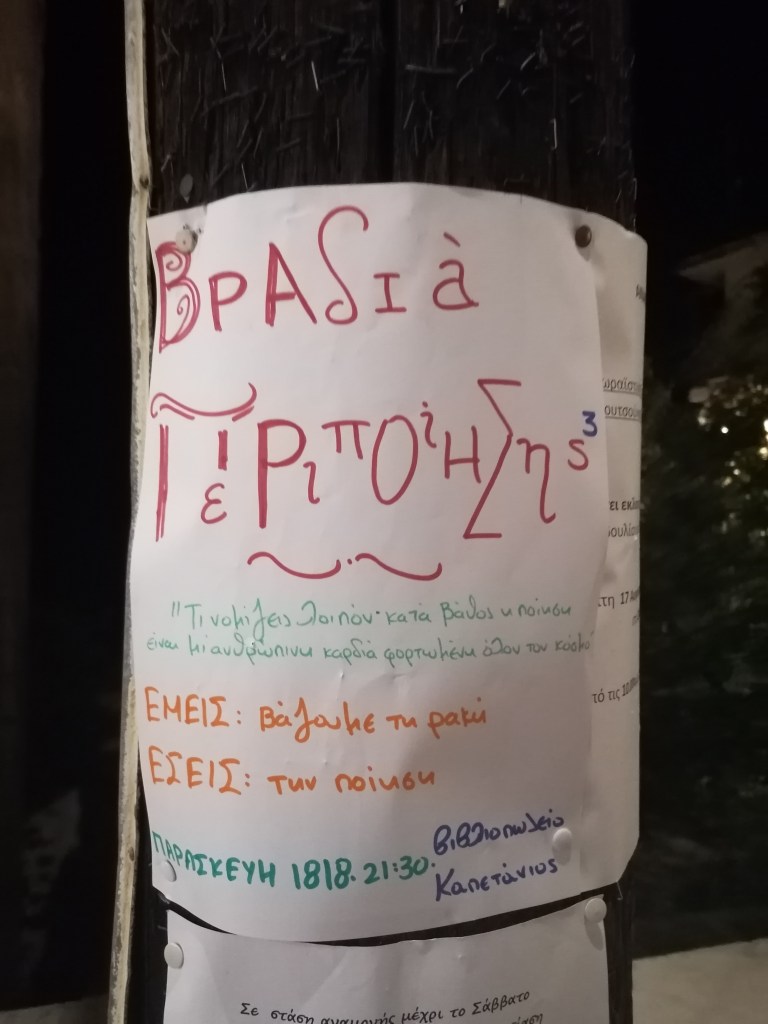 Βραδιὰ
ΠέΡιπΟίΗΣης³
"Τι νομίζεις λοιπόν· κατά βάθος η ποίηση
είναι μι' ανθρώπινη καρδιά φορτωμένη όλον τον κόσμο"
ΕΜΕΙΣ: βάζουμε τη ρακή
ΕΣΕΙΣ: την ποίηση
ΠΑΡΑΣΚΕΥΗ 18|8. 21:30.
Βιβλιοπωλείο
Καπετάνιος
τη 17
τό τις
Σε στάση αναμονής μέχρι το Σάββατο